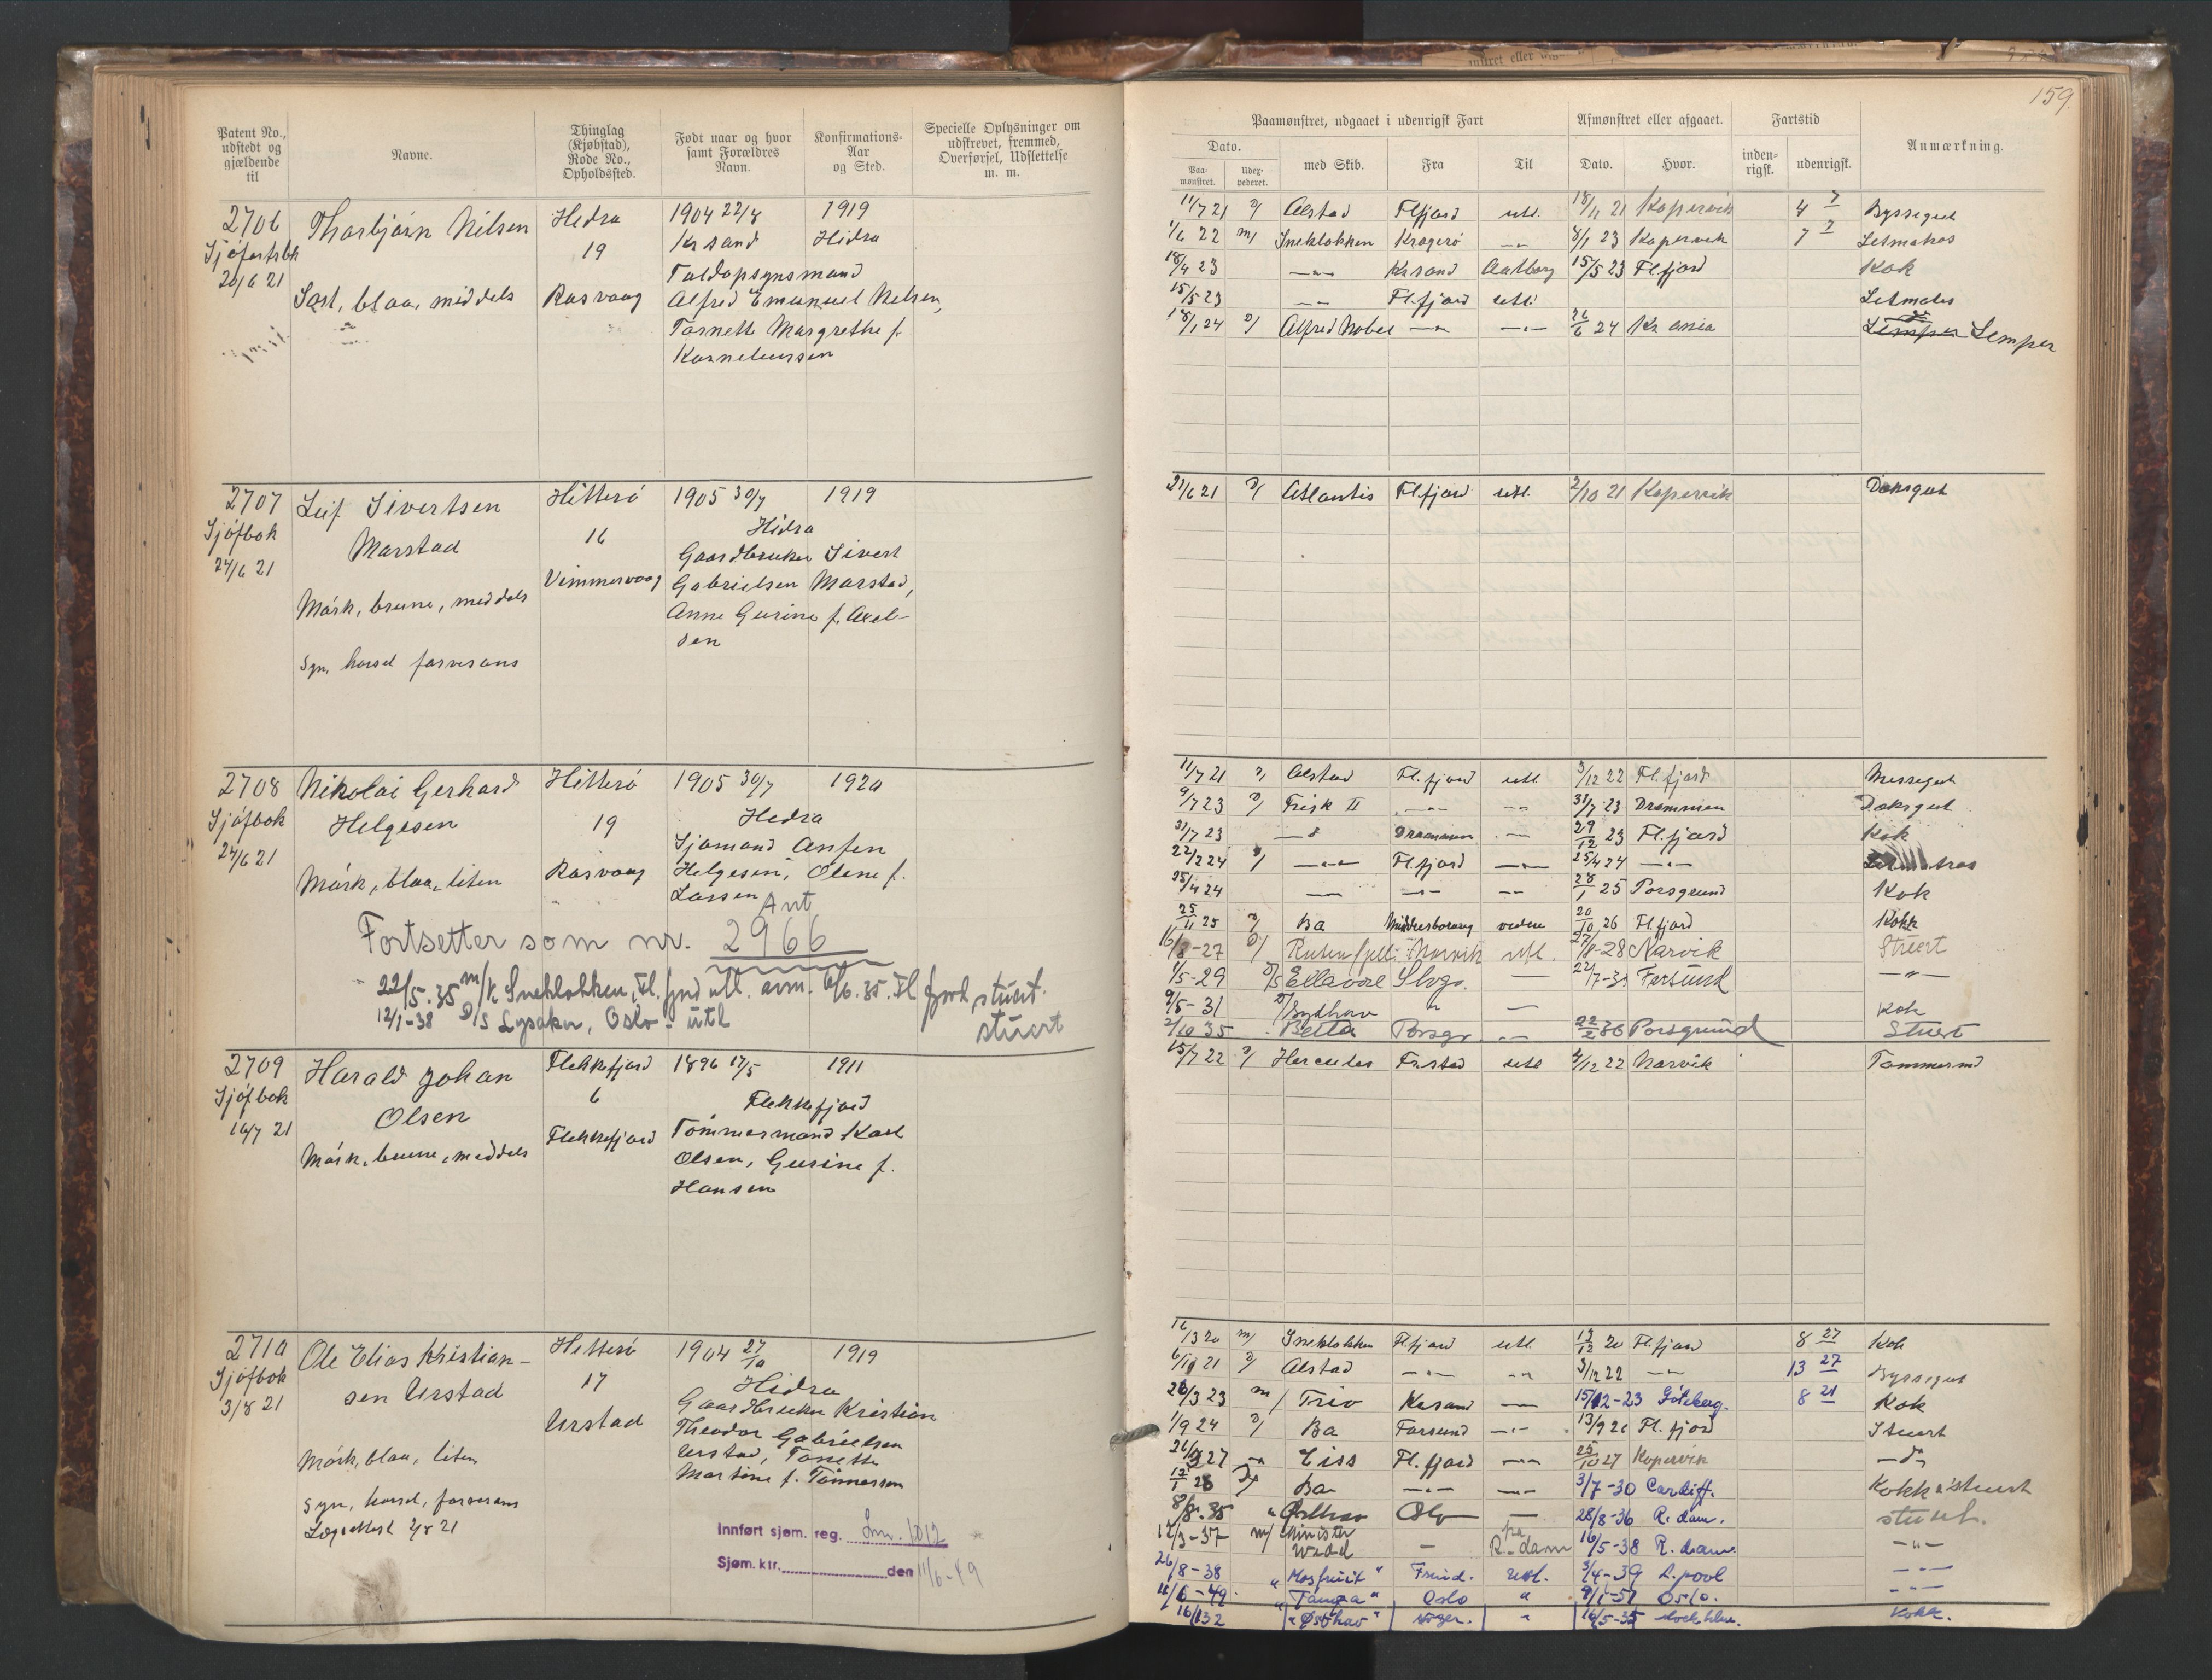 159
Patent No., udstedt og gjældende til
Navne.
Thinglag (Kjøbstad), Rode No., Opholdssted.
Født naar og hvor samt Forældres Navn.
Konfirmations-Aar og Sted.
Specielle Oplysninger om udskrevet, fremmed, Overførsel, Udslettelse m. m.
2706 Thorbjørn Nilsen Hidra 1904 22/8 1919
Sjøfartsbk 19 Kr sand Hidra
20/6 21 Toldopsynsmand
Sort, blaa, middels Rasvaag Alfred Emanuel Nilsen,
Tornette Margrethe f.
Korneliussen
2707 Leif Sivertsen Hitterø 1905 30/7 1919
Sjøfbok Marstad 16 Hidra
24/6 21 Gaardbruker Sivert
Mørk, brune, middels Vimmervaag Gabrielsen Marstad,
Anne Gurine f. Axel-
sen
Syn, hørsel farvesans
2708 Nikolai Gerhard Hitterø 1905 30/7 1920
Sjøfbok Helgesen 19 Hidra
24/6 21 Sjømand Anten
Mørk, blaa, liten Rasvaag Helgesen, Olene f.
Larsen
Fortsetter som nr. 2966
22/5.35 m/k Sneklokken, Fl.fjord utl. avm. 6/6.35. Fl fjord, stuert.
12/1-38 D/S Lysaker, Oslo - utl stuert
2709 Harald Johan Flekkefjord 1896 17/5 1911
Sjøfbok Olsen 6 Flekkefjord
16/7 21 Flekkefjord Tømmermand Karl
Mørk, brune, middels Olsen, Gurine f.
Hansen
2710 Ole Elias Kristian- Hitterø 1904 27/10 1919
Sjøfbok sen Urstad 17 Hidra
3/8 21 Gaardbruker Kristian
Urstad Theodor Gabrielsen
Mørk, blaa, liten Urstad, Tonette
Martine f. Tønnessen
Syn, hørsel, farvesans
Lægeattest 2/8 21
Innført sjøm. reg. 1012
Sjøm.ktr. den 11/6-49
Paamønstret, udgaaet i udenrigsk Fart
Afmønstret eller afgaaet.
Fartstid
Anmærkning.
Dato.
Paa-mønstret. Udex-pederet. med Skib. Fra Til Dato. Hvor. inden-rigsk. udenrigsk.
11/7 21 D/ Alstad Flfjord utl. 18/11 21 Kopervik 4 7 Byssegut
1/6 22 m/ Sneklokken Kragerø -"- 8/1 23 Kopervik 7 7 Letmatros
18/4 23 -"- Kr.sand Aalborg 15/5 23 Flfjord Kok
15/5 23 -"- Fl.fjord utl. Letmatros
18/1 24 D/ Alfred Nobel -"- -"- 26/6 24 Kr.ania Lemper
21/6 21 D/ Atlantis Flfjord utl. 2/10 21 Kopervik Dæksgut
11/7 21 D/ Alstad Fl.fjord utl. 3/12 22 Fl.fjord Messegut
9/7 23 D/ Frisk II -"- -"- 31/7 23 Drammen Dæksgut
31/7 23 -"- Drammen -"- 29/12 23 Fl.fjord Kok
22/2 24 D/ -"- Fl.fjord -"- 25/4 24 -"-
25/4 24 -"- -"- -"- 28/1 25 Porsgrund Kok
25/11 25 D/ Ba Middlesboroug videre 20/10 26 Fl.fjord Kokk
16/8-27 D/ Rutenfjell Narvik utl. 27/8-28 Narvik Stuert
1/5-29 D/S Ellavore Slvgr. — 22/7-30 Farsund -"-
9/5-31 D/ Sydhav " — Kok
2/10 35 Betta Porsgr. -"- 22/2 36 Porsgrund Stuert
15/7 22 D/ Hercules Fr.stad utl 4/12 22 Narvik Tømmermd
m/ Sneklokken Fl.fjord utl. 13/12 20 Fl.fjord 8 27 Kok
6/10 21 D/ Alstad -"- -"- 3/12 22 -"- 13 27 Byssegut
26/3 23 m/ Trio Kr.sand — 15/12-23 Göteborg. 8 21 Kok
1/9 24 D/ Ba Farsund -"- 13/9 26 Fl.fjord Stuert
Liss Fl.fjord -"- 25/10 27 Kopervik -do-
12/1 28 D/ Ba -"- -"- 3/7-30 Cardiff. Kokk & stuert
8/8.35 " Østhav Oslo — 28/8-36 R.dam. stuert.
12/3-37 m/ Minister Wedel — R.dam 16/5-38 R.dam -"-
26/8-38 " "Mosfruit" Fr.sund. utl. 3/4-39 L.pool -"-
11/6-49. " "Tanga" Oslo " 9/1-51 Oslo. -"-
16/1 32 "Østhav" " 16/5-35 Kokk.